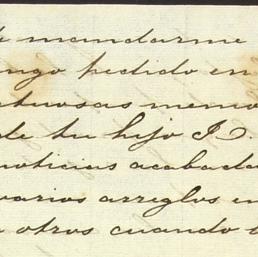 mandarme
ngo pedido en
tuosas memo
de tu hijo J.
noticias acabada
varios arreglos en
otros cuando